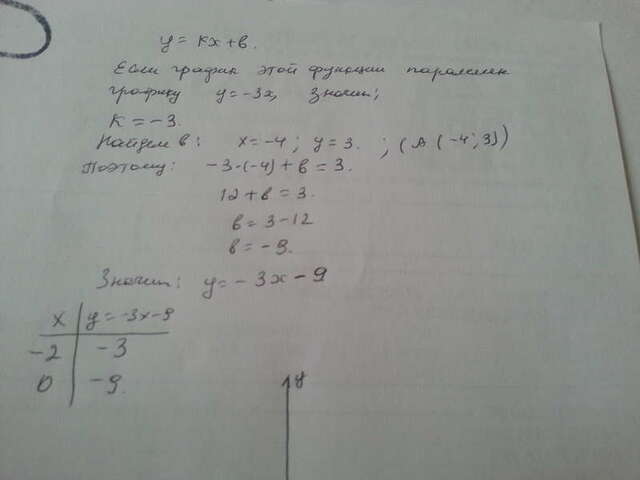 y = kx + в.
Если график этой функции параллелен
графику y = -3x, значит;
K = -3.
Найдем в: x = -4; y = 3. ; (A (-4; 3))
Поэтому: -3·(-4) + в = 3.
12 + в = 3.
в = 3 - 12
в = -9.
Значит: y = -3x - 9
x | y = -3x-9
-2 | -3
0 | -9.
y